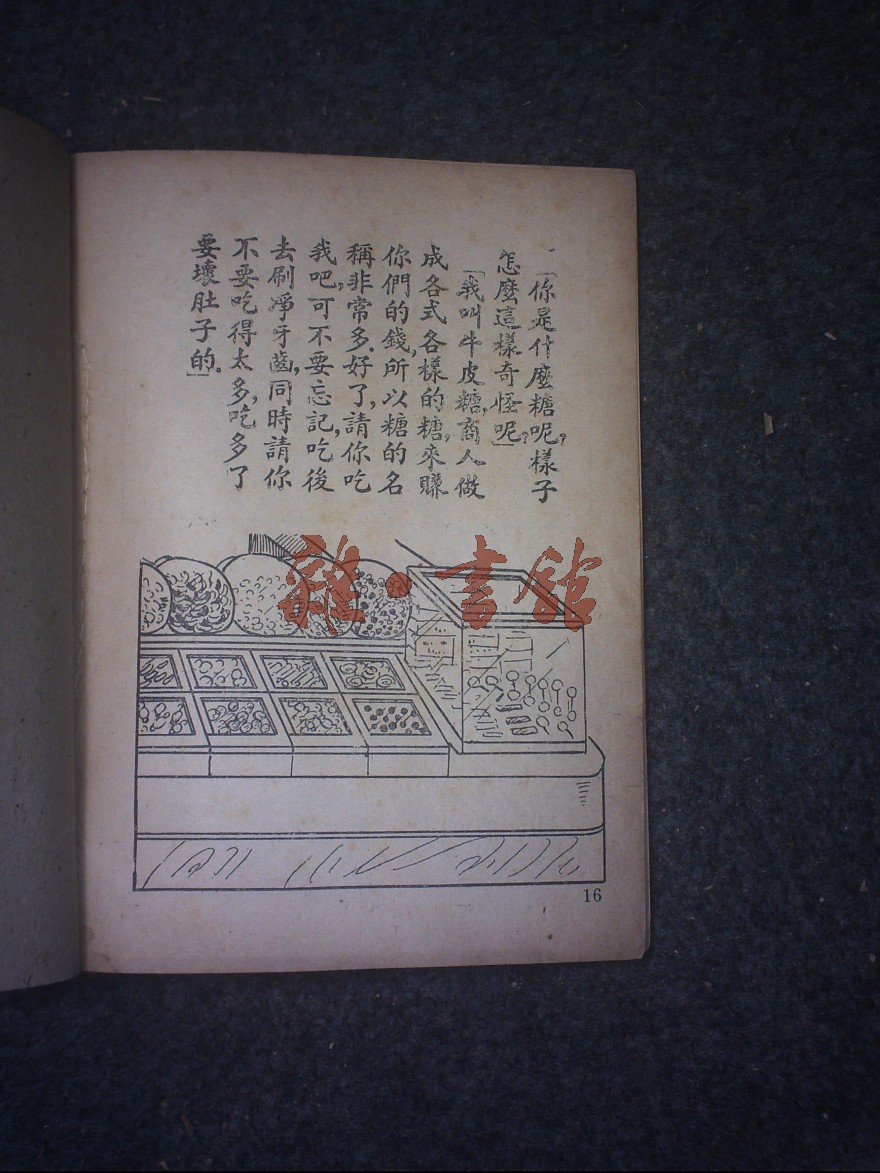 「你是什麼糖呢?樣子
怎麼這樣奇怪呢?」
「我叫牛皮糖,商人做
成各式各樣的糖,來賺
你們的錢,所以糖的名
稱非常多.好了,請你吃
我吧,可不要忘記,吃後
去刷凈牙齒,同時請你
不要吃得太多,吃多了
要壞肚子的。」
雜·書館
16